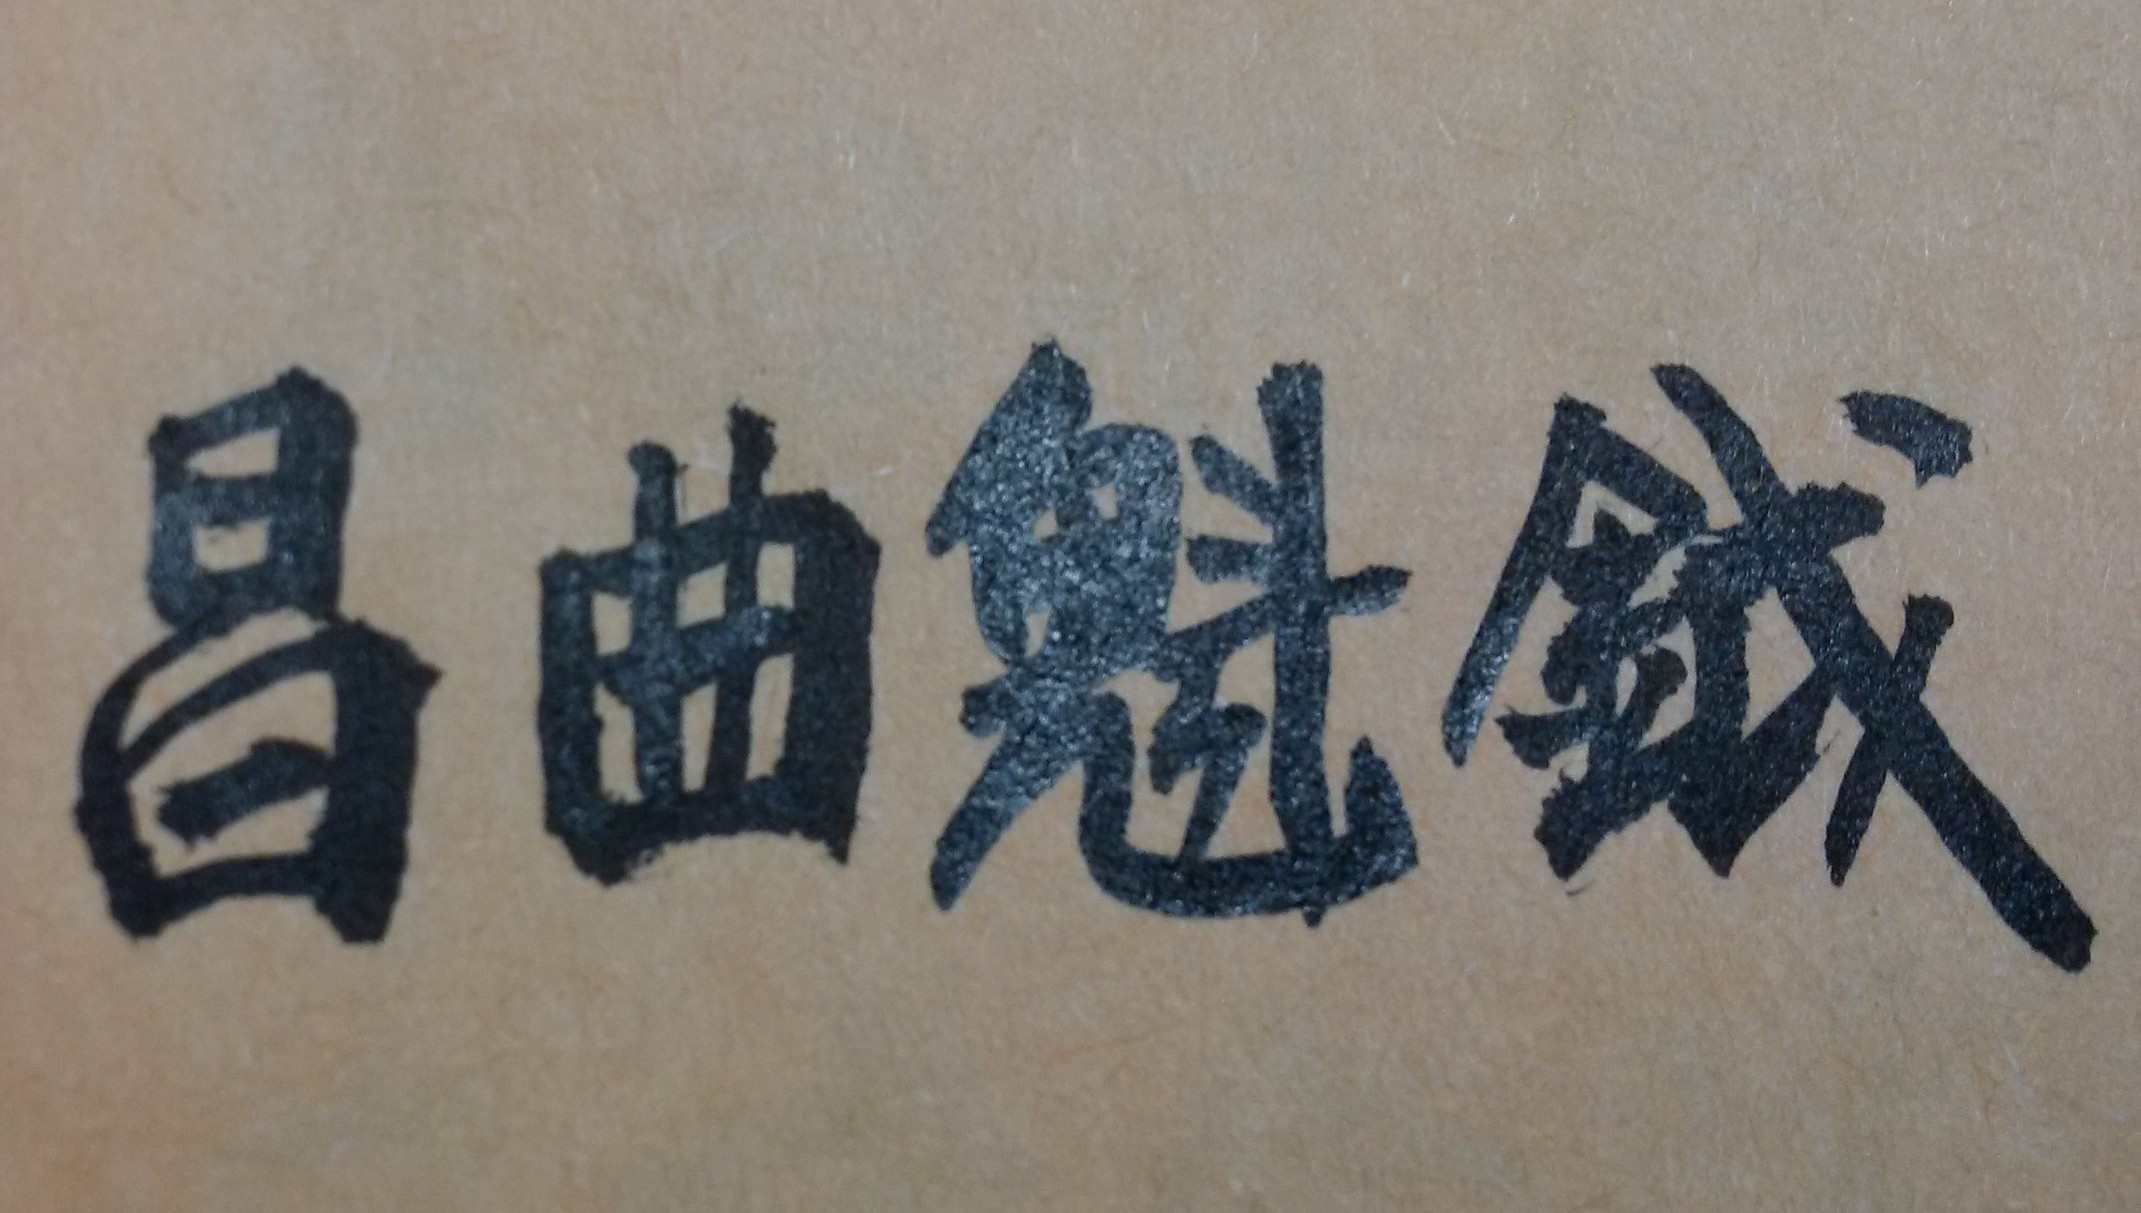 昌曲魁鉞